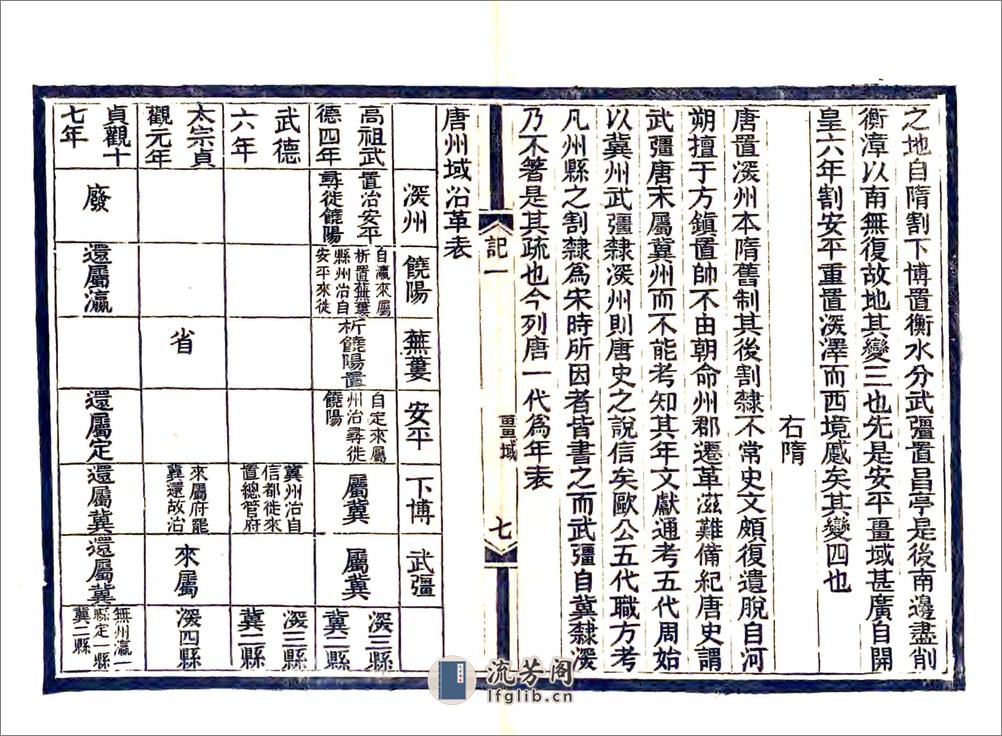 之地自隋割下博置衡水分武彊置昌亭是後南邊盡削
衡漳以南無復故地其變三也先是安平畺域甚廣自開
皇六年割安平重置深澤而西境蹙矣其變四也
右隋
唐置深州本隋舊制其後割隸不常史文頗復遺脫自河
朔擅于方鎮置帥不由朝命州郡遷革滋難備紀唐史謂
武彊唐末屬冀州而不能考知其年文獻通考五代周始
以冀州武彊隸深州則唐史之說信矣歐公五代職方考
凡州縣之割隸爲宋時所因者皆書之而武彊自冀隸深
乃不箸是其疏也今列唐一代爲年表
記一
畺域
七
唐州域沿革表
深州
饒陽
蕪蔞
安平
下博
武彊
高祖武
德四年
置治安平
尋徙饒陽
自瀛來屬
析置蕪蔞
縣州治自
安平來徙
析饒陽置
自定來屬
州治尋徙
饒陽
屬冀
屬冀
深三縣
冀二縣
武德
六年
冀州治自
信都徙來
置總管府
深三縣
冀二縣
太宗貞
觀元年
省
來屬府罷
冀還故治
來屬
深四縣
貞觀十
七年
廢
還屬瀛
還屬定
還屬冀
還屬冀
無州瀛一
縣定一縣
冀二縣
流芳阁
lfglib.cn